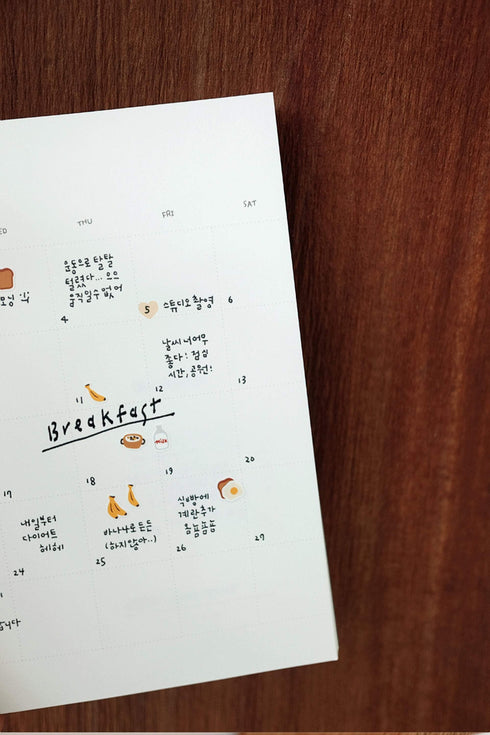 ED
THU
FRI
SAT
운동으로 탈탈
털렸다... 으으
움직일수 없어
모닝
4
5 스튜디오 촬영
6
날씨 너어무
좋다! 점심
시간, 공원!
11
12
13
Breakfast
milk
17
18
19
20
내일부터
다이어트
헤헤
바나나로 든든
(하지않아..)
식빵에
계란추가
욤뇸뇸뇸
24
25
26
27
니다